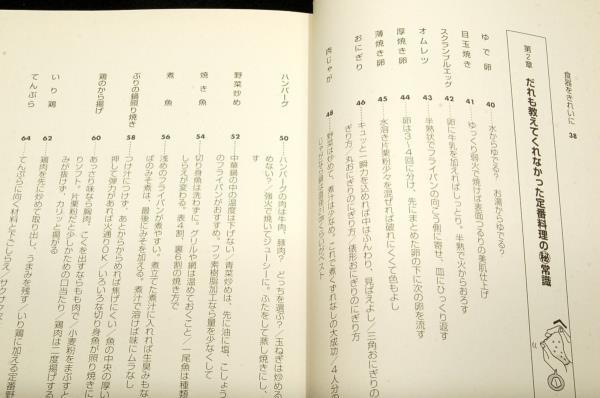 食器をきれいに 38
第2章 だれも教えてくれなかった定番料理の㊙常識
ゆで卵 40 水からゆでる? お湯からゆでる?
目玉焼き 41 ゆっくり弱火で焼けば表面つるりの美肌仕上げ
スクランブルエッグ 42 卵に牛乳を加えればしっとり。半熟で火からおろす
オムレツ 43 半熟状でフライパンの向こう側に寄せ、皿にひっくり返す
厚焼き卵 44 卵は3〜4回に分け、先にまとめた卵の下に次の卵を流す
薄焼き卵 45 水溶き片栗粉少々を混ぜれば破れにくくて色もよし
おにぎり 46 キュッと一瞬力を込めれば中はふんわり、見ばえよし/三角おにぎりの
にぎり方/丸おにぎりのにぎり方/俵形おにぎりのにぎり方
肉じゃが 48 野菜は炒めて、煮汁は少なめ。これで煮くずれなしの大成功/4人分の
ハンバーグ 50 ハンバーグの肉は牛肉、豚肉? どっちを選ぶ?/玉ねぎは炒める、
炒めない?/強火で焼いてジューシーに。ふたをして蒸し焼きにし、
す
野菜炒め 52 中華鍋の中の温度は下げない/青菜炒めは、先に油に塩、こしょう
のフライパンがおすすめ。フッ素樹脂加工なら量を少なくして
焼き魚 54 切り身は洗わずに。グリルや網は温めておくこと/一尾魚は種類
しらえが変わる。表4割、裏6割の焼き方で
煮魚 56 浅めのフライパンが煮やすい。煮立てた煮汁に入れれば生臭みもな
ばのみそ煮は、最後にみそを加える。煮汁で溶けば味にムラなし
ぶりの鍋照り焼き 58 つけ汁につけず、あとからからめれば焦げにくい/魚の中央の厚い
押して弾力があれば火通りOK/いろいろな切り身魚が照り焼きに
鶏のから揚げ 60 あっさり味なら胸肉、こくを出すならもも肉で/小麦粉をまぶすと
りソフト。片栗粉だとぷしかための口当たり/鶏肉は二度揚げする
みが抜けず、カリッと揚がる
いり鶏 62 鶏肉を先に炒めて取り出し、うまみを残す/いり鶏に加える定番野
てんぷら 64 てんぷらに向く材料と下ごしらえ/サクサク